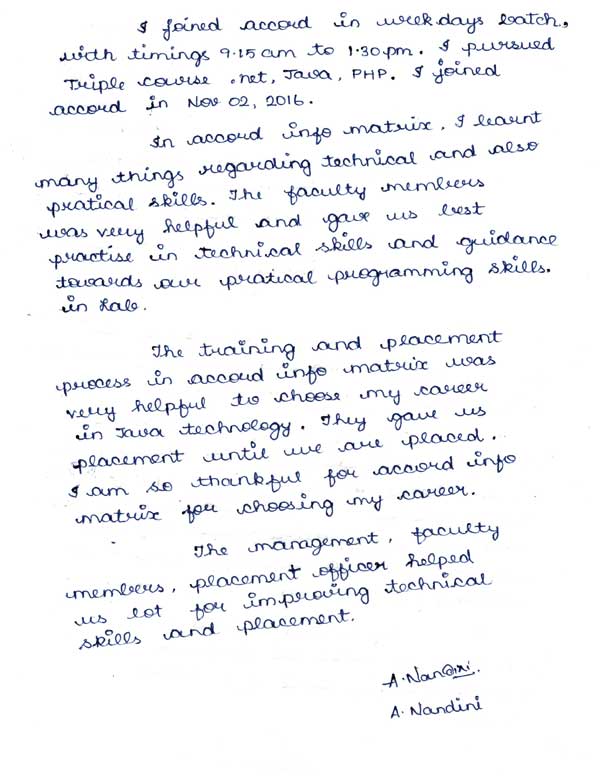 I joined accord in weekdays batch,
with timings 9.15 am to 1.30 pm. I pursued
Triple course .net, Java, PHP. I joined
accord in Nov 02, 2016.
In accord info matrix, I learnt
many things regarding technical and also
pratical skills. The faculty members
was very helpful and gave us best
practise in technical skills and guidance
towards our pratical programming skills.
in Lab.
The training and placement
process in accord info matrix was
very helpful to choose my career
in Java technology. They gave us
placement until we are placed.
I am so thankful for accord info
matrix for choosing my career.
The management, faculty
members, placement officer helped
us lot for improving technical
skills and placement.
A. Nandini.
A. Nandini